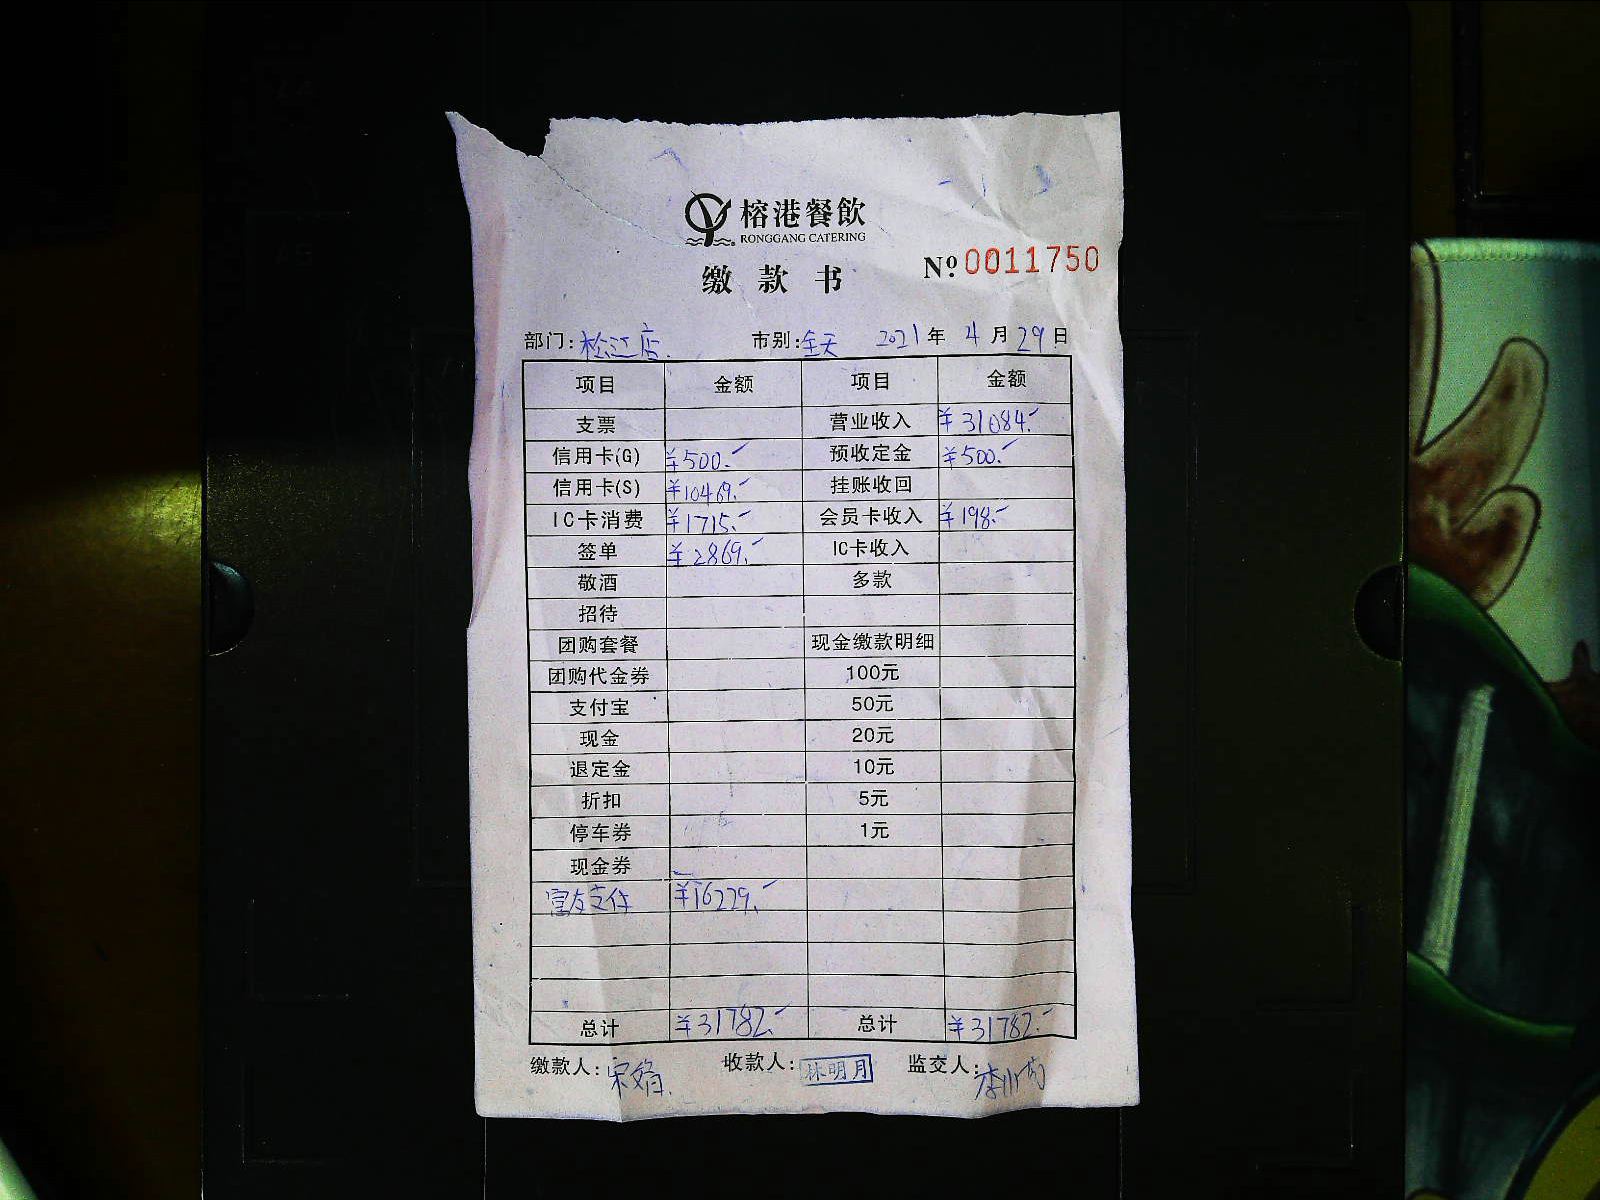 榕港餐飲
RONGGANG CATERING
缴款书
№ 0011750
部门:松江店. 市别:全天 2021年4月29日
项目 金额 项目 金额
支票 营业收入 ¥31084.-
信用卡(G) ¥500.- 预收定金 ¥500.-
信用卡(S) ¥10469.- 挂账收回
IC卡消费 ¥1715.- 会员卡收入 ¥198.-
签单 ¥2869.- IC卡收入
敬酒 多款
招待
团购套餐 现金缴款明细
团购代金券 100元
支付宝 50元
现金 20元
退定金 10元
折扣 5元
停车券 1元
现金券
富友支付 ¥16229.-
总计 ¥31782.- 总计 ¥31782.-
缴款人:宋娟. 收款人:林明月 监交人:李小